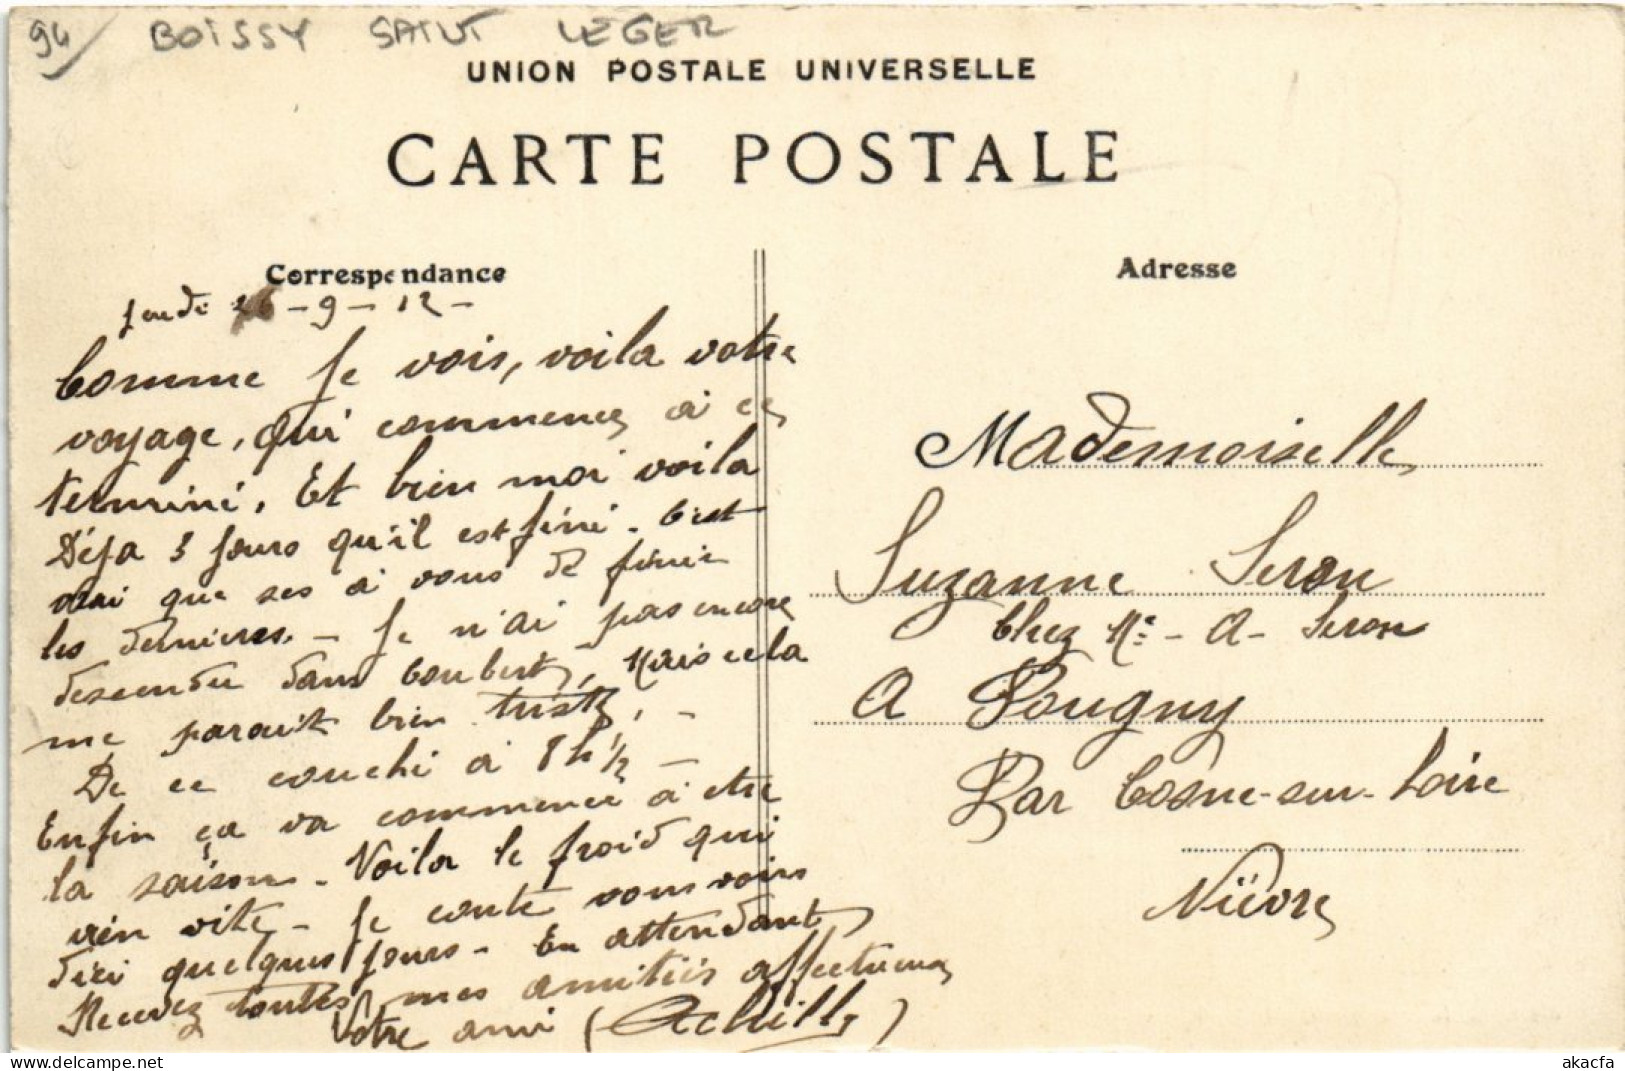 94/ BOISSY SAINT LEGER
UNION POSTALE UNIVERSELLE
CARTE POSTALE
Correspondance
Jeudi 26-9-12-
Comme Je vois, voila votre
voyage, qui commence à ce
terminé, Et bien moi voila
Déja 3 Jours qu'il est finé. C'est
vrai que ses à vous de finir
les dernieres. - Je n'ai pas encore
descendu dans Coubert, Mais cela
me parait bien triste, -
De ce couché à 8h 1/2 -
Enfin ça va commencé à etre
la saison. Voila le froid qui
vien vite - Je conte vous voirs
d'ici quelques Jours - En attendant
Recevez toutes mes amitiés affectueus
Votre ami (Achille)
Adresse
Mademoiselle
Suzanne Seron
Chez Mr - A - Seron
A Pougny
Par Cosne-sur-Loire
Nièvre
akacfa